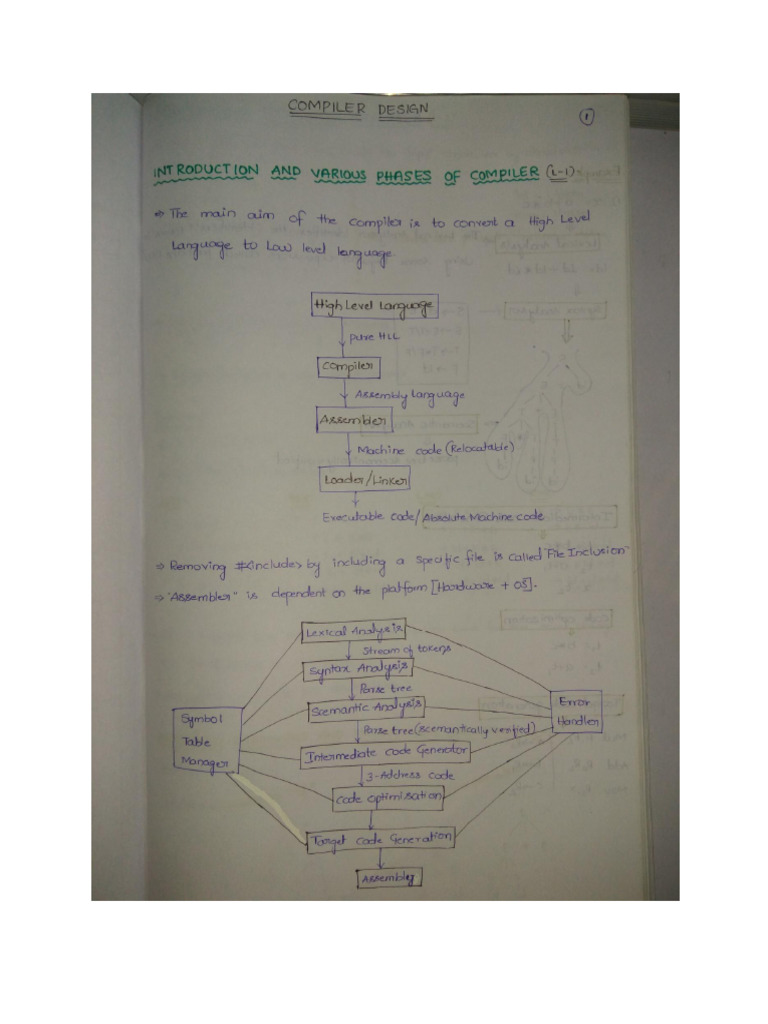 COMPILER DESIGN
1
INTRODUCTION AND VARIOUS PHASES OF COMPILER (L-1)
⇒ The main aim of the compiler is to convert a High Level
Language to Low level language
High Level Language
pure HLL
Compiler
Assembly language
Assembler
Machine code (Relocatable)
Loader/Linker
Executable code/Absolute Machine code
⇒ Removing #includes by including a specific file is called "File Inclusion"
⇒ "Assembler" is dependent on the platform [Hardware + OS].
Lexical Analysis
Stream of tokens
Syntax Analysis
Parse tree
Scemantic Analysis
Error
Handler
Symbol
Table
Manager
Parse tree (scemantically verified)
Intermediate code Generator
3-Address code
Code Optimisation
Target code Generation
Assembly